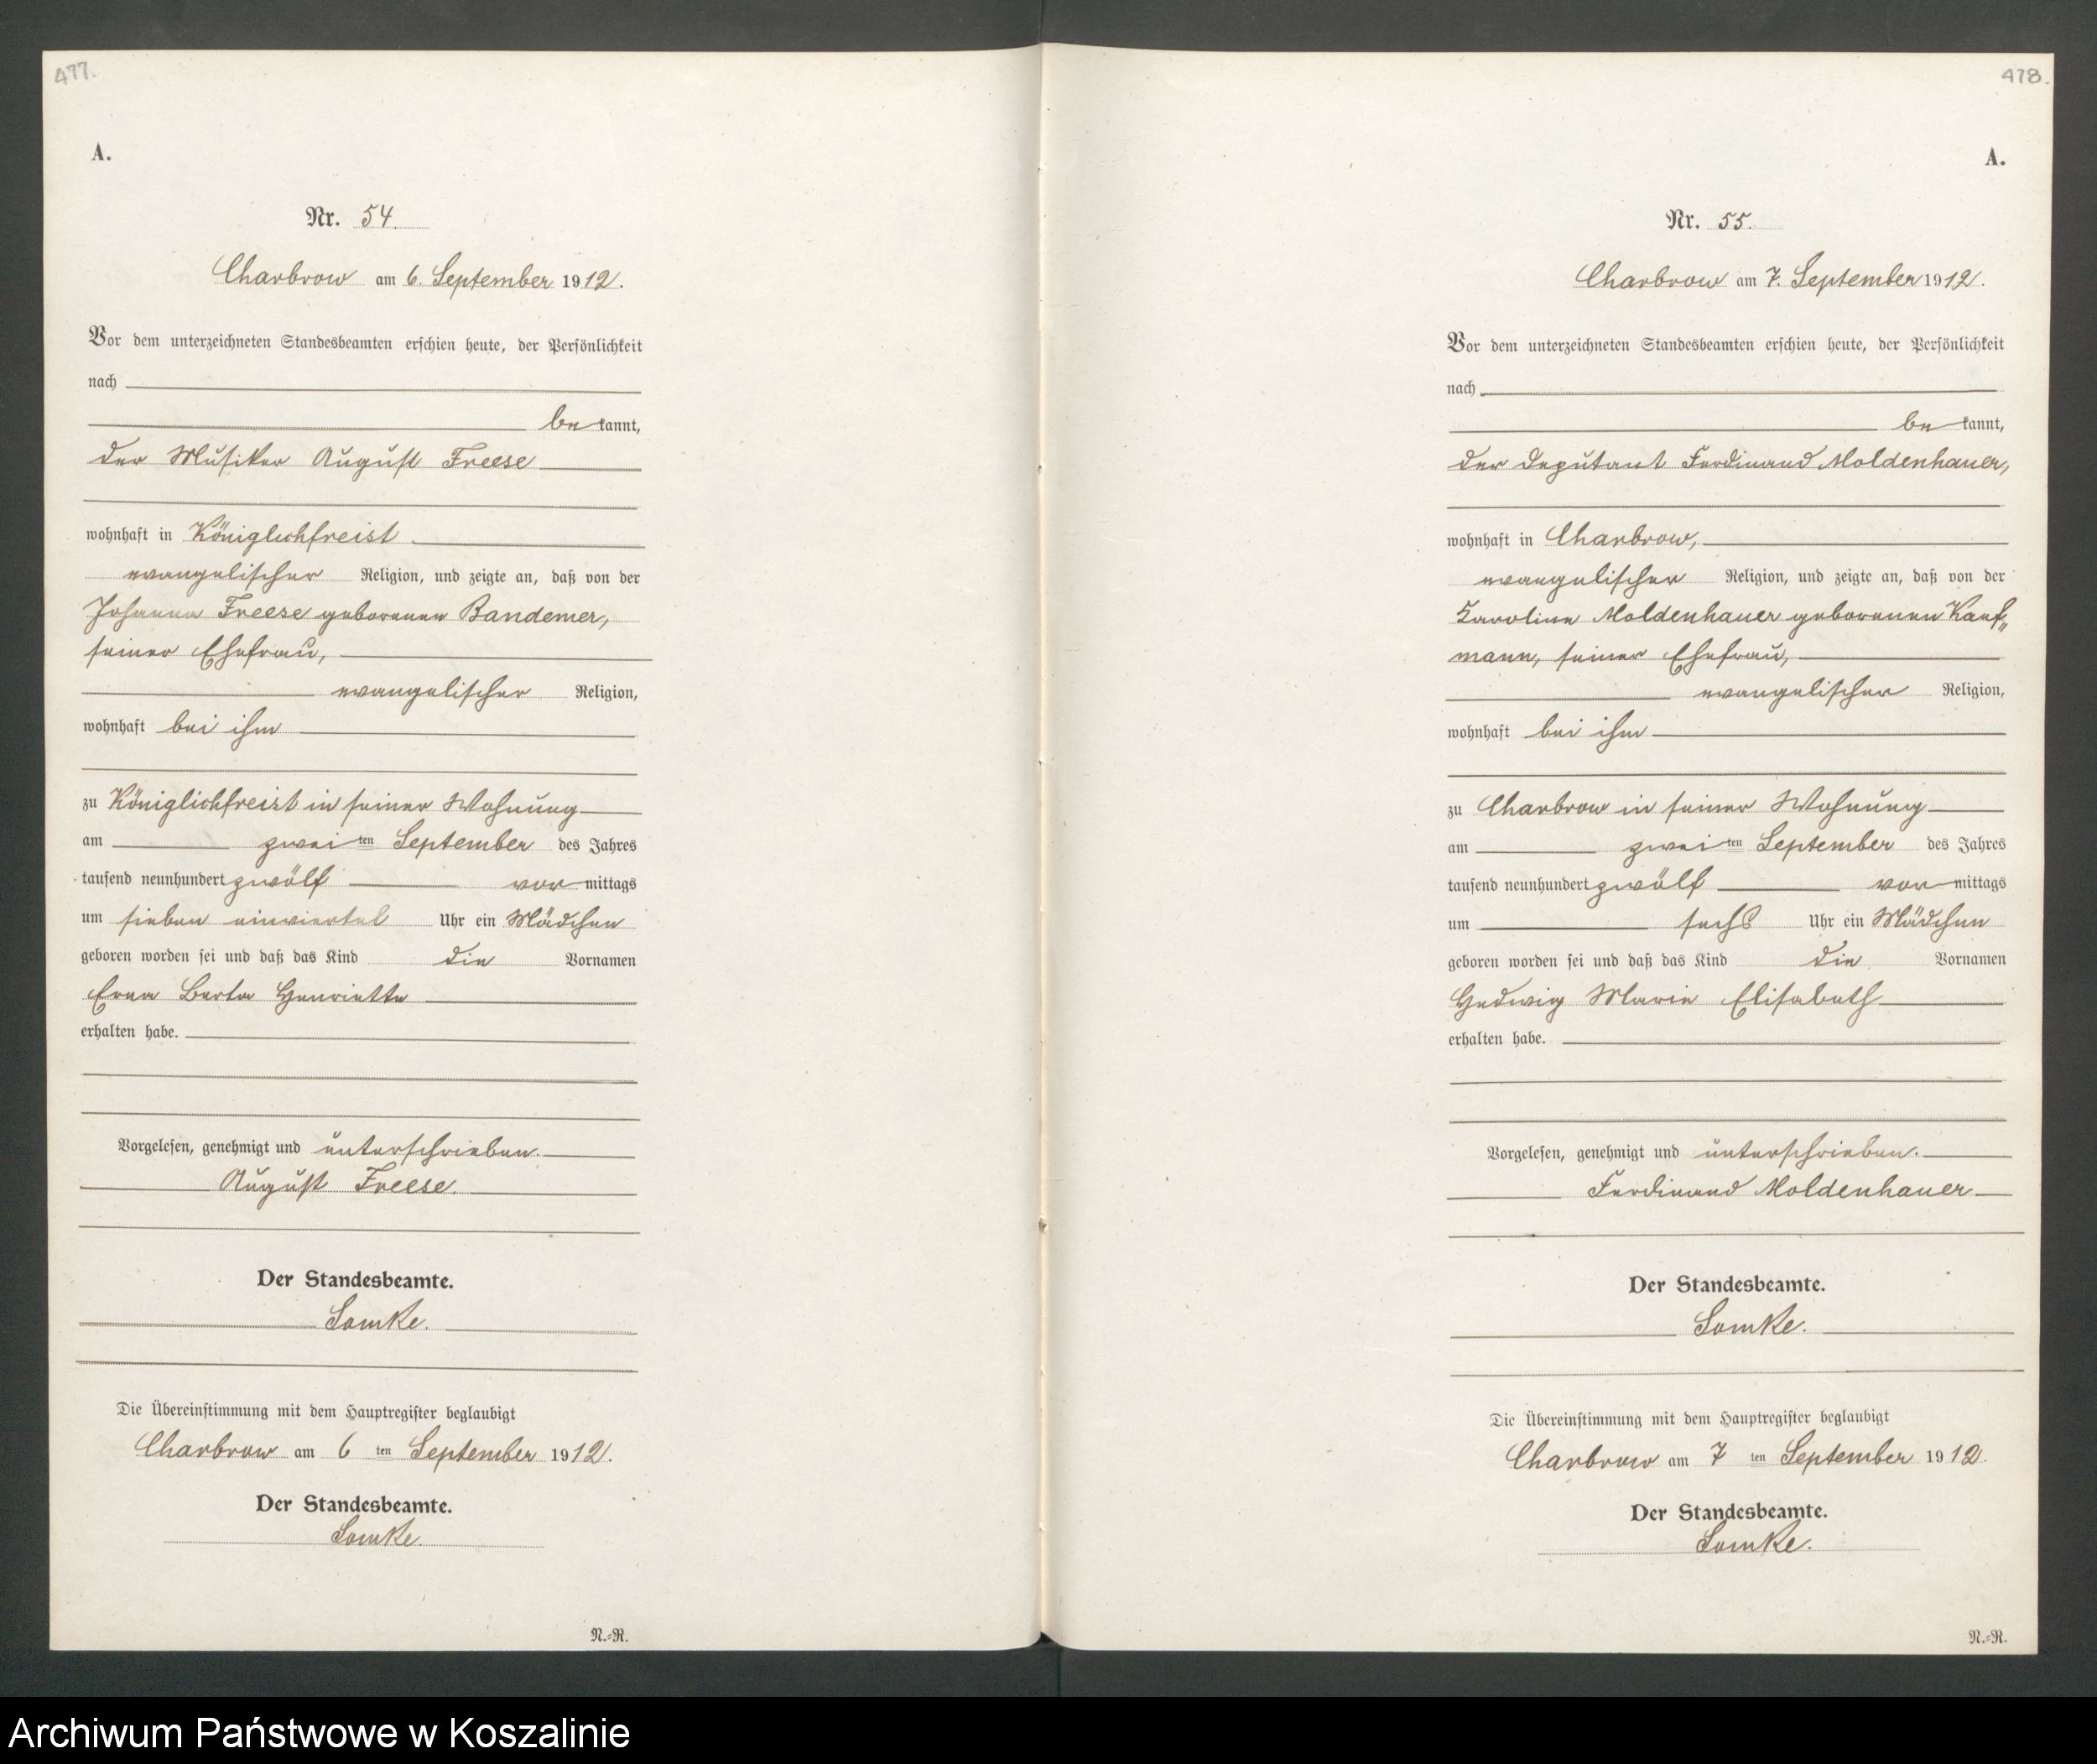 477.
A.
Nr. 54.
Charbrow am 6. September 1912.
Vor dem unterzeichneten Standesbeamten erschien heute, der Persönlichkeit
nach
be kannt,
der Musiker August Freese
wohnhaft in Königlichfreist
evangelischer Religion, und zeigte an, daß von der
Johanna Freese geborenen Bandemer,
seiner Ehefrau,
evangelischer Religion,
wohnhaft bei ihm
zu Königlichfreist in seiner Wohnung
am zwei ten September des Jahres
tausend neunhundert zwölf vor mittags
um sieben einviertel Uhr ein Mädchen
geboren worden sei und daß das Kind die Vornamen
Erna Berta Henriette
erhalten habe.
Vorgelesen, genehmigt und unterschrieben.
August Freese.
Der Standesbeamte.
Somke.
Die Übereinstimmung mit dem Hauptregister beglaubigt
Charbrow am 6 ten September 1912.
Der Standesbeamte.
Somke.
N.=R.
478.
A.
Nr. 55.
Charbrow am 7. September 1912.
Vor dem unterzeichneten Standesbeamten erschien heute, der Persönlichkeit
nach
be kannt,
der Deputant Ferdinand Moldenhauer,
wohnhaft in Charbrow,
evangelischer Religion, und zeigte an, daß von der
Karoline Moldenhauer geborenen Kauf„
mann, seiner Ehefrau,
evangelischer Religion,
wohnhaft bei ihm
zu Charbrow in seiner Wohnung
am zwei ten September des Jahres
tausend neunhundert zwölf vor mittags
um sechs Uhr ein Mädchen
geboren worden sei und daß das Kind die Vornamen
Hedwig Marie Elisabeth
erhalten habe.
Vorgelesen, genehmigt und unterschrieben.
Ferdinand Moldenhauer
Der Standesbeamte.
Somke.
Die Übereinstimmung mit dem Hauptregister beglaubigt
Charbrow am 7 ten September 1912.
Der Standesbeamte.
Somke.
N.=R.
Archiwum Państwowe w Koszalinie